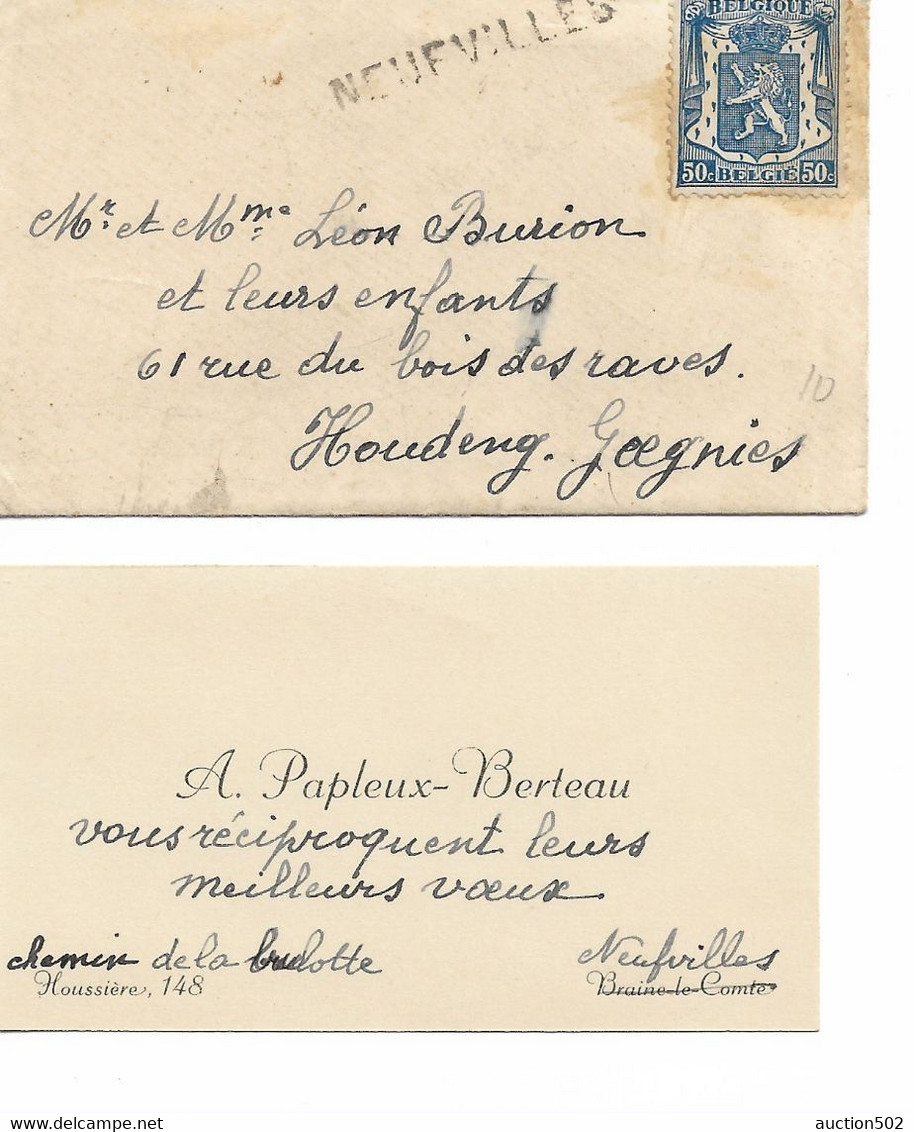 BELGIQUE
NEUFVILLES
50c BELGIE 50c
Mr. et Mme. Léon Burion
et leurs enfants
61 rue du bois des raves.
10
Houdeng. Gœgnies
A. Papleux-Berteau
vous réciproquent leurs
meilleurs vœux
chemin de la Neufvilles
Houssière, 148 Braine-le-Comte
auction502